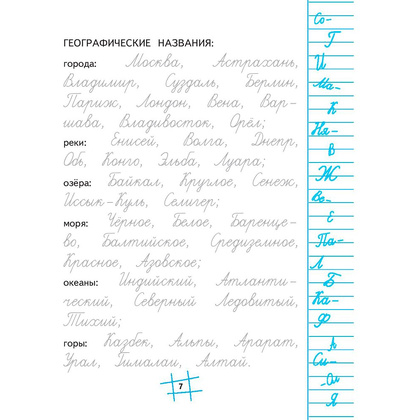 ГЕОГРАФИЧЕСКИЕ НАЗВАНИЯ:
города: Москва, Астрахань,
Владимир, Суздаль, Берлин,
Париж, Лондон, Вена, Вар-
шава, Владивосток, Орёл;
реки: Енисей, Волга, Днепр,
Обь, Конго, Эльба, Луара;
озёра: Байкал, Круглое, Сенеж,
Иссык-Куль, Селигер;
моря: Чёрное, Белое, Баренце-
во, Балтийское, Средиземное,
Красное, Азовское;
океаны: Индийский, Атланти-
ческий, Северный Ледовитый,
Тихий;
горы: Казбек, Альпы, Арарат,
Урал, Гималаи, Алтай.
7
Со-
Г
И
Ма-
К
Ня-
В
Ж
Во-
Е
Па-
Л
Б
Ка-
Ф
Си-
Я